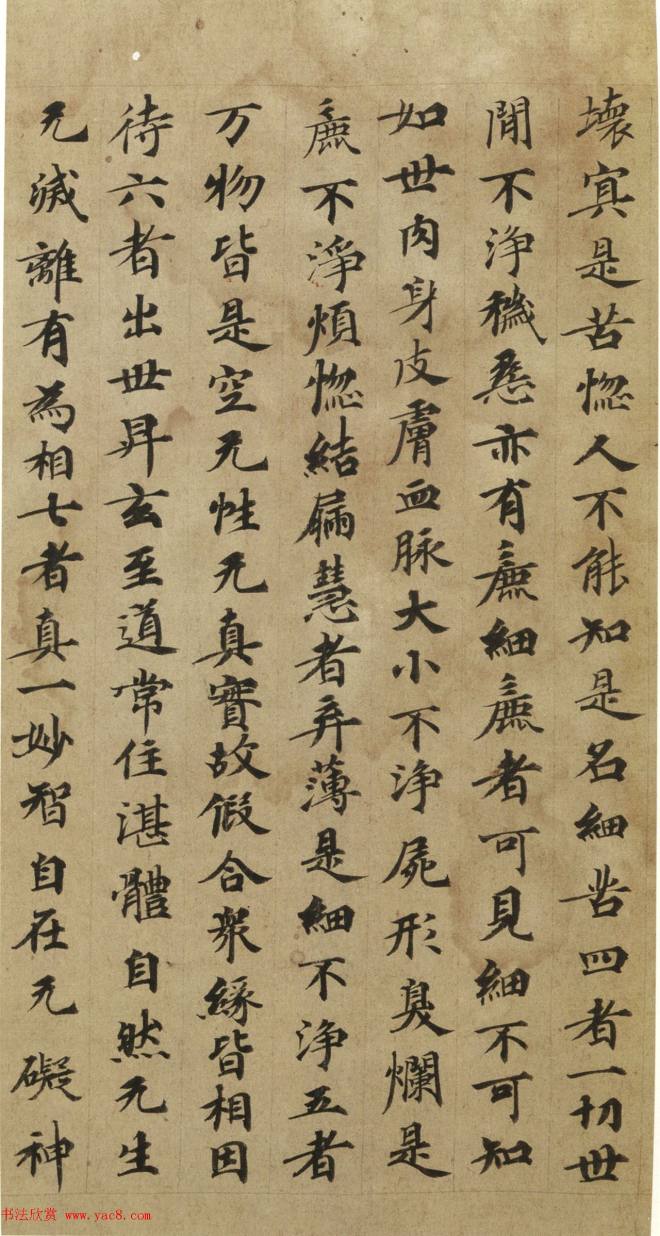 壞是苦惚人不能知是名細苦四者一切世
閒不淨穢惡亦有麁細麁者可見細不可知
如世肉身皮膚血脉大小不淨屍形臭爛是
麁不淨煩惚結漏慧者弃薄是細不淨五者
万物皆是空无性无真實故假合眾緣皆相因
待六者出世昇玄至道常住湛體自然无生
无滅離有為相七者真一妙智自在无礙神
书法欣赏 www.yac8.com